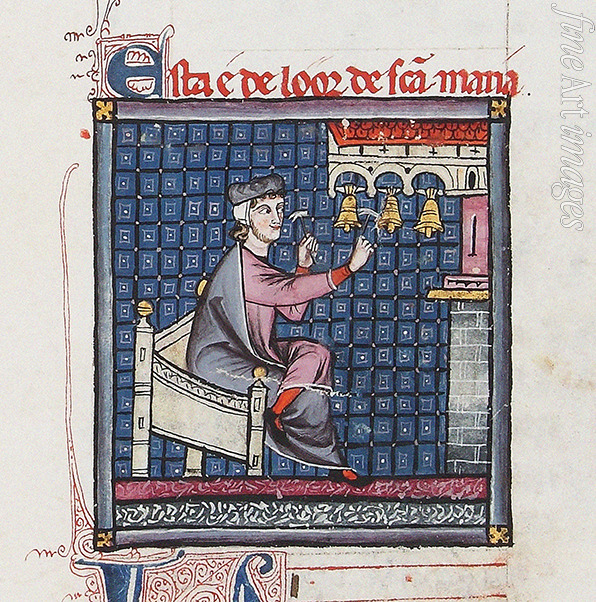 Esta é de loor de sc̃a. maria.
fine Art images